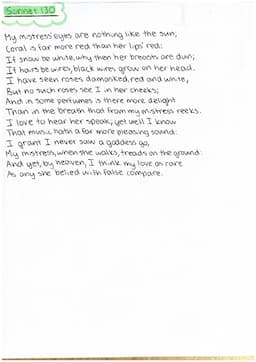 Sonnet 130
My mistress' eyes are nothing like the sun;
Coral is far more red than her lips' red:
If snow be white, why then her breasts are dun;
If hairs be wires, black wires grow on her head.
I have seen roses damasked, red and white,
But no such roses see I in her cheeks;
And in some perfumes is there more delight
Than in the breath that from my mistress reeks.
I love to hear her speak; yet well I know
That music hath a far more pleasing sound:
I grant I never saw a goddess go,
My mistress, when she walks, treads on the ground:
And yet, by heaven, I think my love as rare
As any she belied with false compare.